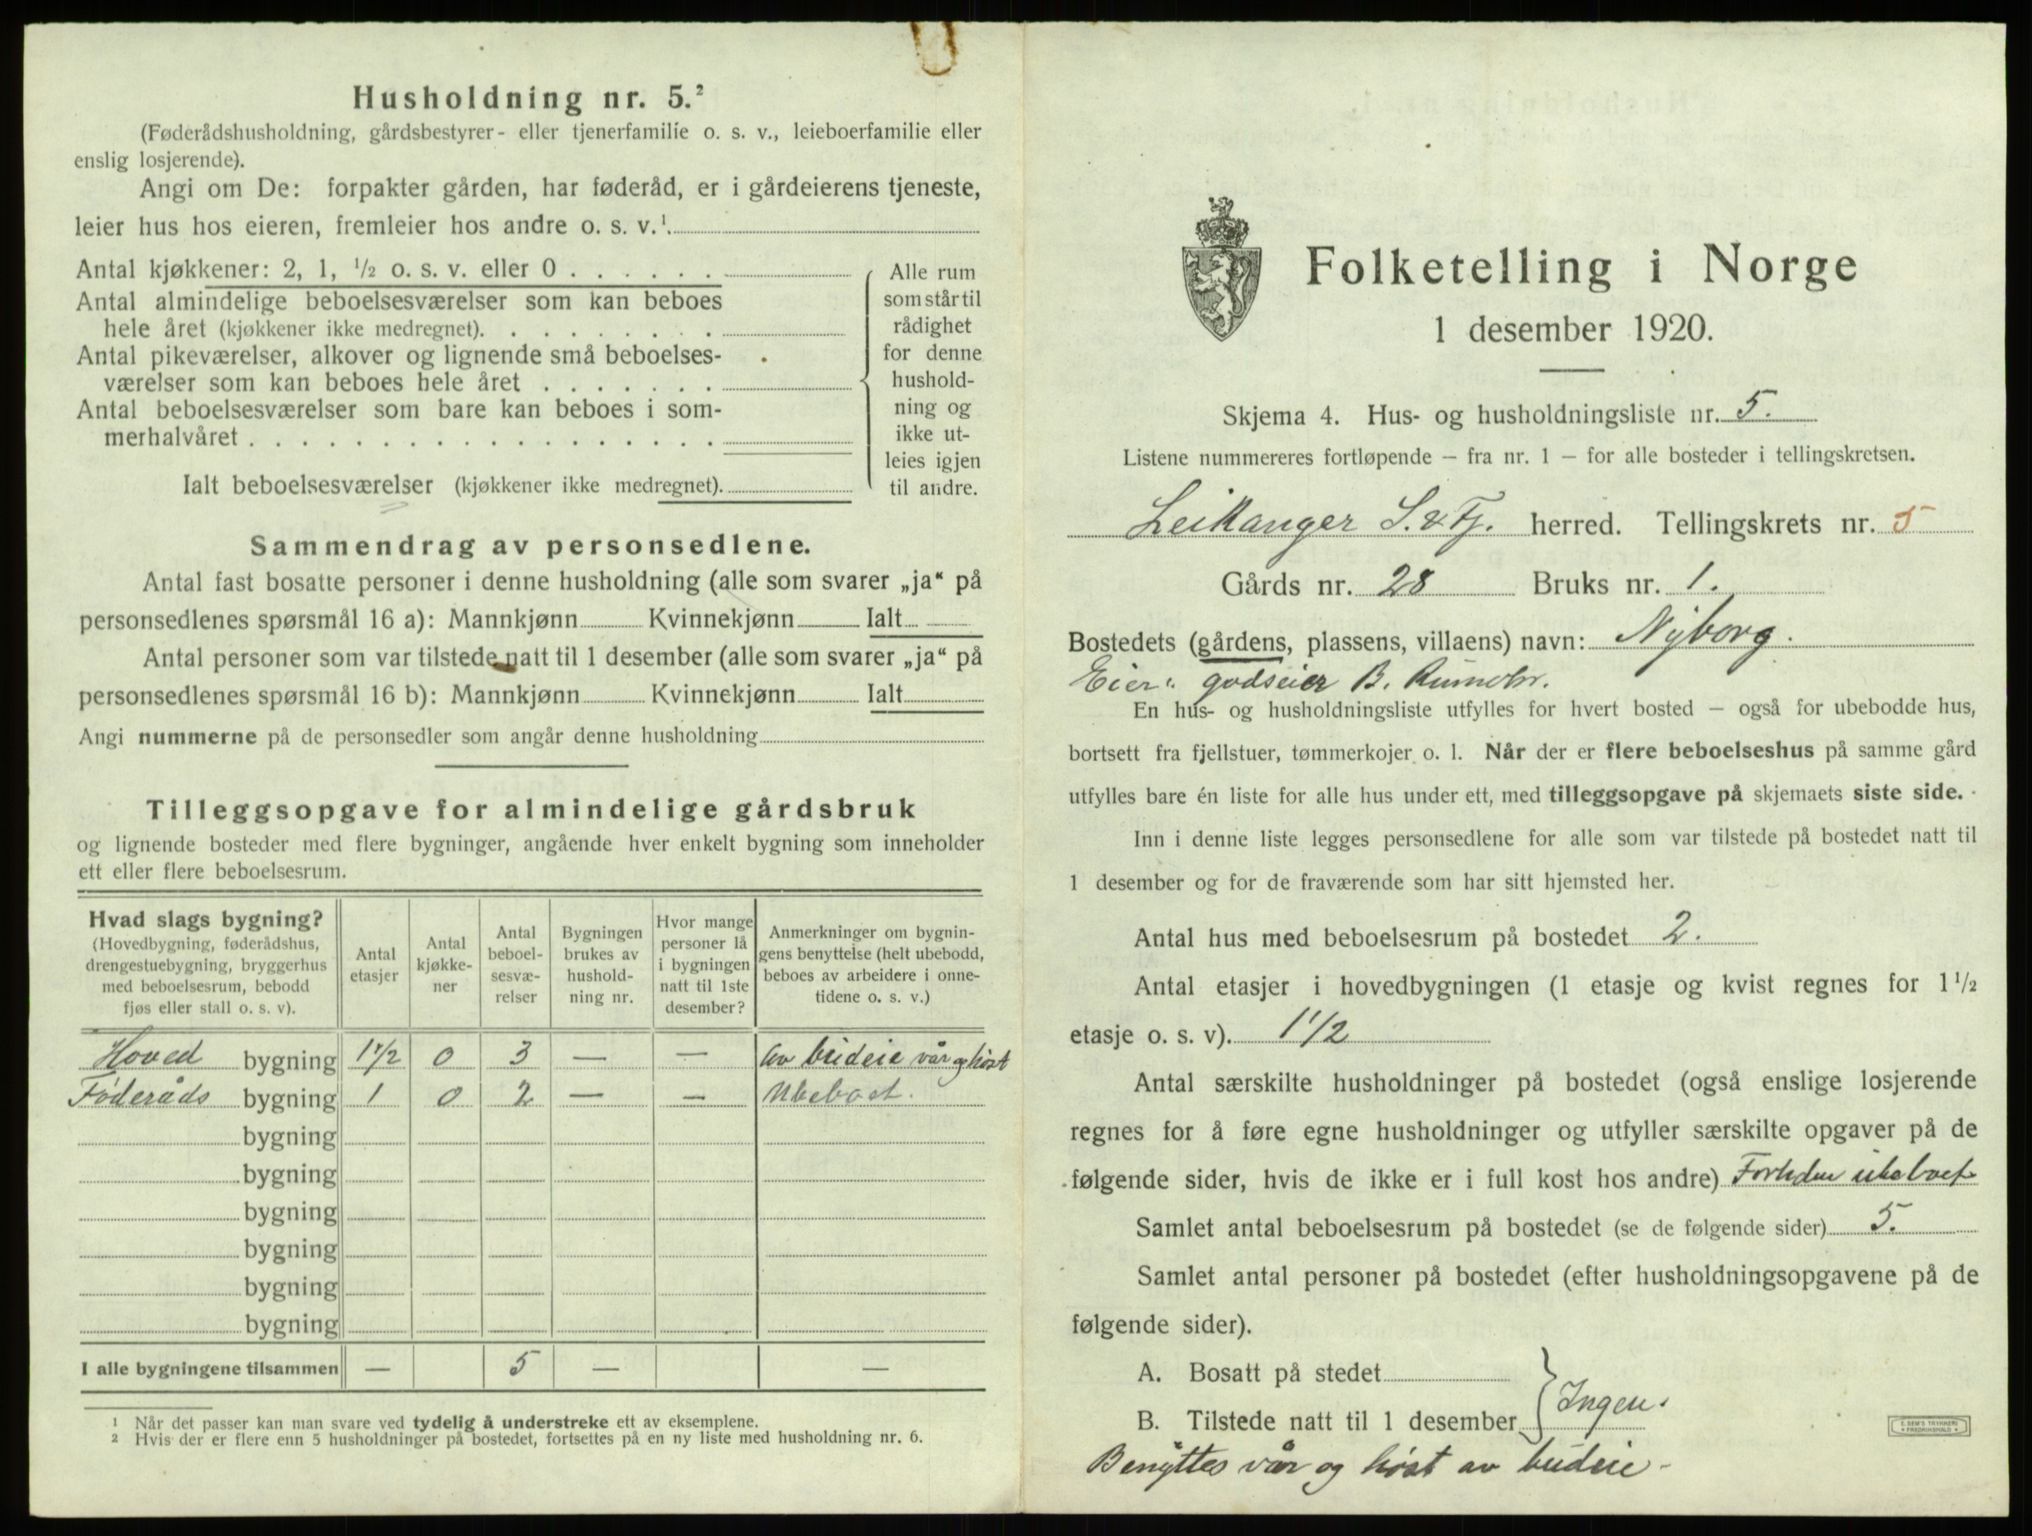 Husholdning nr. 5.²
(Føderådshusholdning, gårdsbestyrer- eller tjenerfamilie o. s. v., leieboerfamilie eller
enslig losjerende).
Angi om De: forpakter gården, har føderåd, er i gårdeierens tjeneste,
leier hus hos eieren, fremleier hos andre o. s. v.¹.
Antal kjøkkener: 2, 1, ½ o. s. v. eller 0 . . . . . .
Antal almindelige beboelsesværelser som kan beboes
hele året (kjøkkener ikke medregnet). . . . . . . . .
Antal pikeværelser, alkover og lignende små beboelses-
værelser som kan beboes hele året . . . . . . .
Antal beboelsesværelser som bare kan beboes i som-
merhalvåret . . . . . . . . . . . . . . . . . .
Ialt beboelsesværelser (kjøkkener ikke medregnet).
Alle rum
som står til
rådighet
for denne
hushold-
ning og
ikke ut-
leies igjen
til andre.
Sammendrag av personsedlene.
Antal fast bosatte personer i denne husholdning (alle som svarer „ja“ på
personsedlenes spørsmål 16 a): Mannkjønn Kvinnekjønn Ialt
Antal personer som var tilstede natt til 1 desember (alle som svarer „ja“ på
personsedlenes spørsmål 16 b): Mannkjønn Kvinnekjønn Ialt
Angi nummerne på de personsedler som angår denne husholdning
Tilleggsopgave for almindelige gårdsbruk
og lignende bosteder med flere bygninger, angående hver enkelt bygning som inneholder
ett eller flere beboelsesrum.
Hvad slags bygning?
(Hovedbygning, føderådshus,
drengestuebygning, bryggerhus
med beboelsesrum, bebodd
fjøs eller stall o. s. v).
Antal
etasjer
Antal
kjøkke-
ner
Antal
beboel-
sesvæ-
relser
Bygningen
brukes av
hushold-
ning nr.
Hvor mange
personer lå
i bygningen
natt til 1ste
desember?
Anmerkninger om bygnin-
gens benyttelse (helt ubebodd,
beboes av arbeidere i onne-
tidene o. s. v.)
Hoved bygning 1½ 0 3 — — Av budeie vår og høst
Føderåds bygning 1 0 2 — — Ubeboet.
bygning
bygning
bygning
bygning
bygning
bygning
I alle bygningene tilsammen — 5 — —
¹ Når det passer kan man svare ved tydelig å understreke ett av eksemplene.
² Hvis der er flere enn 5 husholdninger på bostedet, fortsettes på en ny liste med husholdning nr. 6.
Folketelling i Norge
1 desember 1920.
Skjema 4. Hus- og husholdningsliste nr. 5.
Listene nummereres fortløpende – fra nr. 1 – for alle bosteder i tellingskretsen.
Leikanger S. & Fj. herred. Tellingskrets nr. 5
Gårds nr. 28 Bruks nr. 1.
Bostedets (gårdens, plassens, villaens) navn: Nyborg.
Eier: godseier B. Rumohr.
En hus- og husholdningsliste utfylles for hvert bosted – også for ubebodde hus,
bortsett fra fjellstuer, tømmerkojer o. l. Når der er flere beboelseshus på samme gård
utfylles bare én liste for alle hus under ett, med tilleggsopgave på skjemaets siste side.
Inn i denne liste legges personsedlene for alle som var tilstede på bostedet natt til
1 desember og for de fraværende som har sitt hjemsted her.
Antal hus med beboelsesrum på bostedet 2.
Antal etasjer i hovedbygningen (1 etasje og kvist regnes for 1½
etasje o. s. v). 1½
Antal særskilte husholdninger på bostedet (også enslige losjerende
regnes for å føre egne husholdninger og utfyller særskilte opgaver på de
følgende sider, hvis de ikke er i full kost hos andre) Fortiden ubeboet
Samlet antal beboelsesrum på bostedet (se de følgende sider) 5.
Samlet antal personer på bostedet (efter husholdningsopgavene på de
følgende sider).
A. Bosatt på stedet
B. Tilstede natt til 1 desember
Ingen.
Benyttes vår og høst av budeie -
E. SEM'S TRYKKERI
FREDRIKSHALD